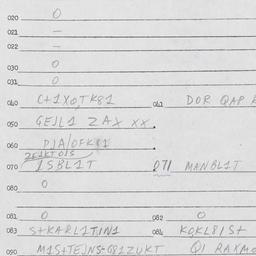 020 0
021 —
022 —
030 0
031 0
040 C+1XOTK81 041 DOR QAP
050 GEJL1 ZAX XX.
060 DJA/OFK81
2EJKTO15
070 1SBL1T 071 MANBL1T
080 0
081 0 082 0
083 S+KARL1TIN1 084 KQKL8/S+
090 M1S+TEJNS+Q81ZUKT QI RAXMO